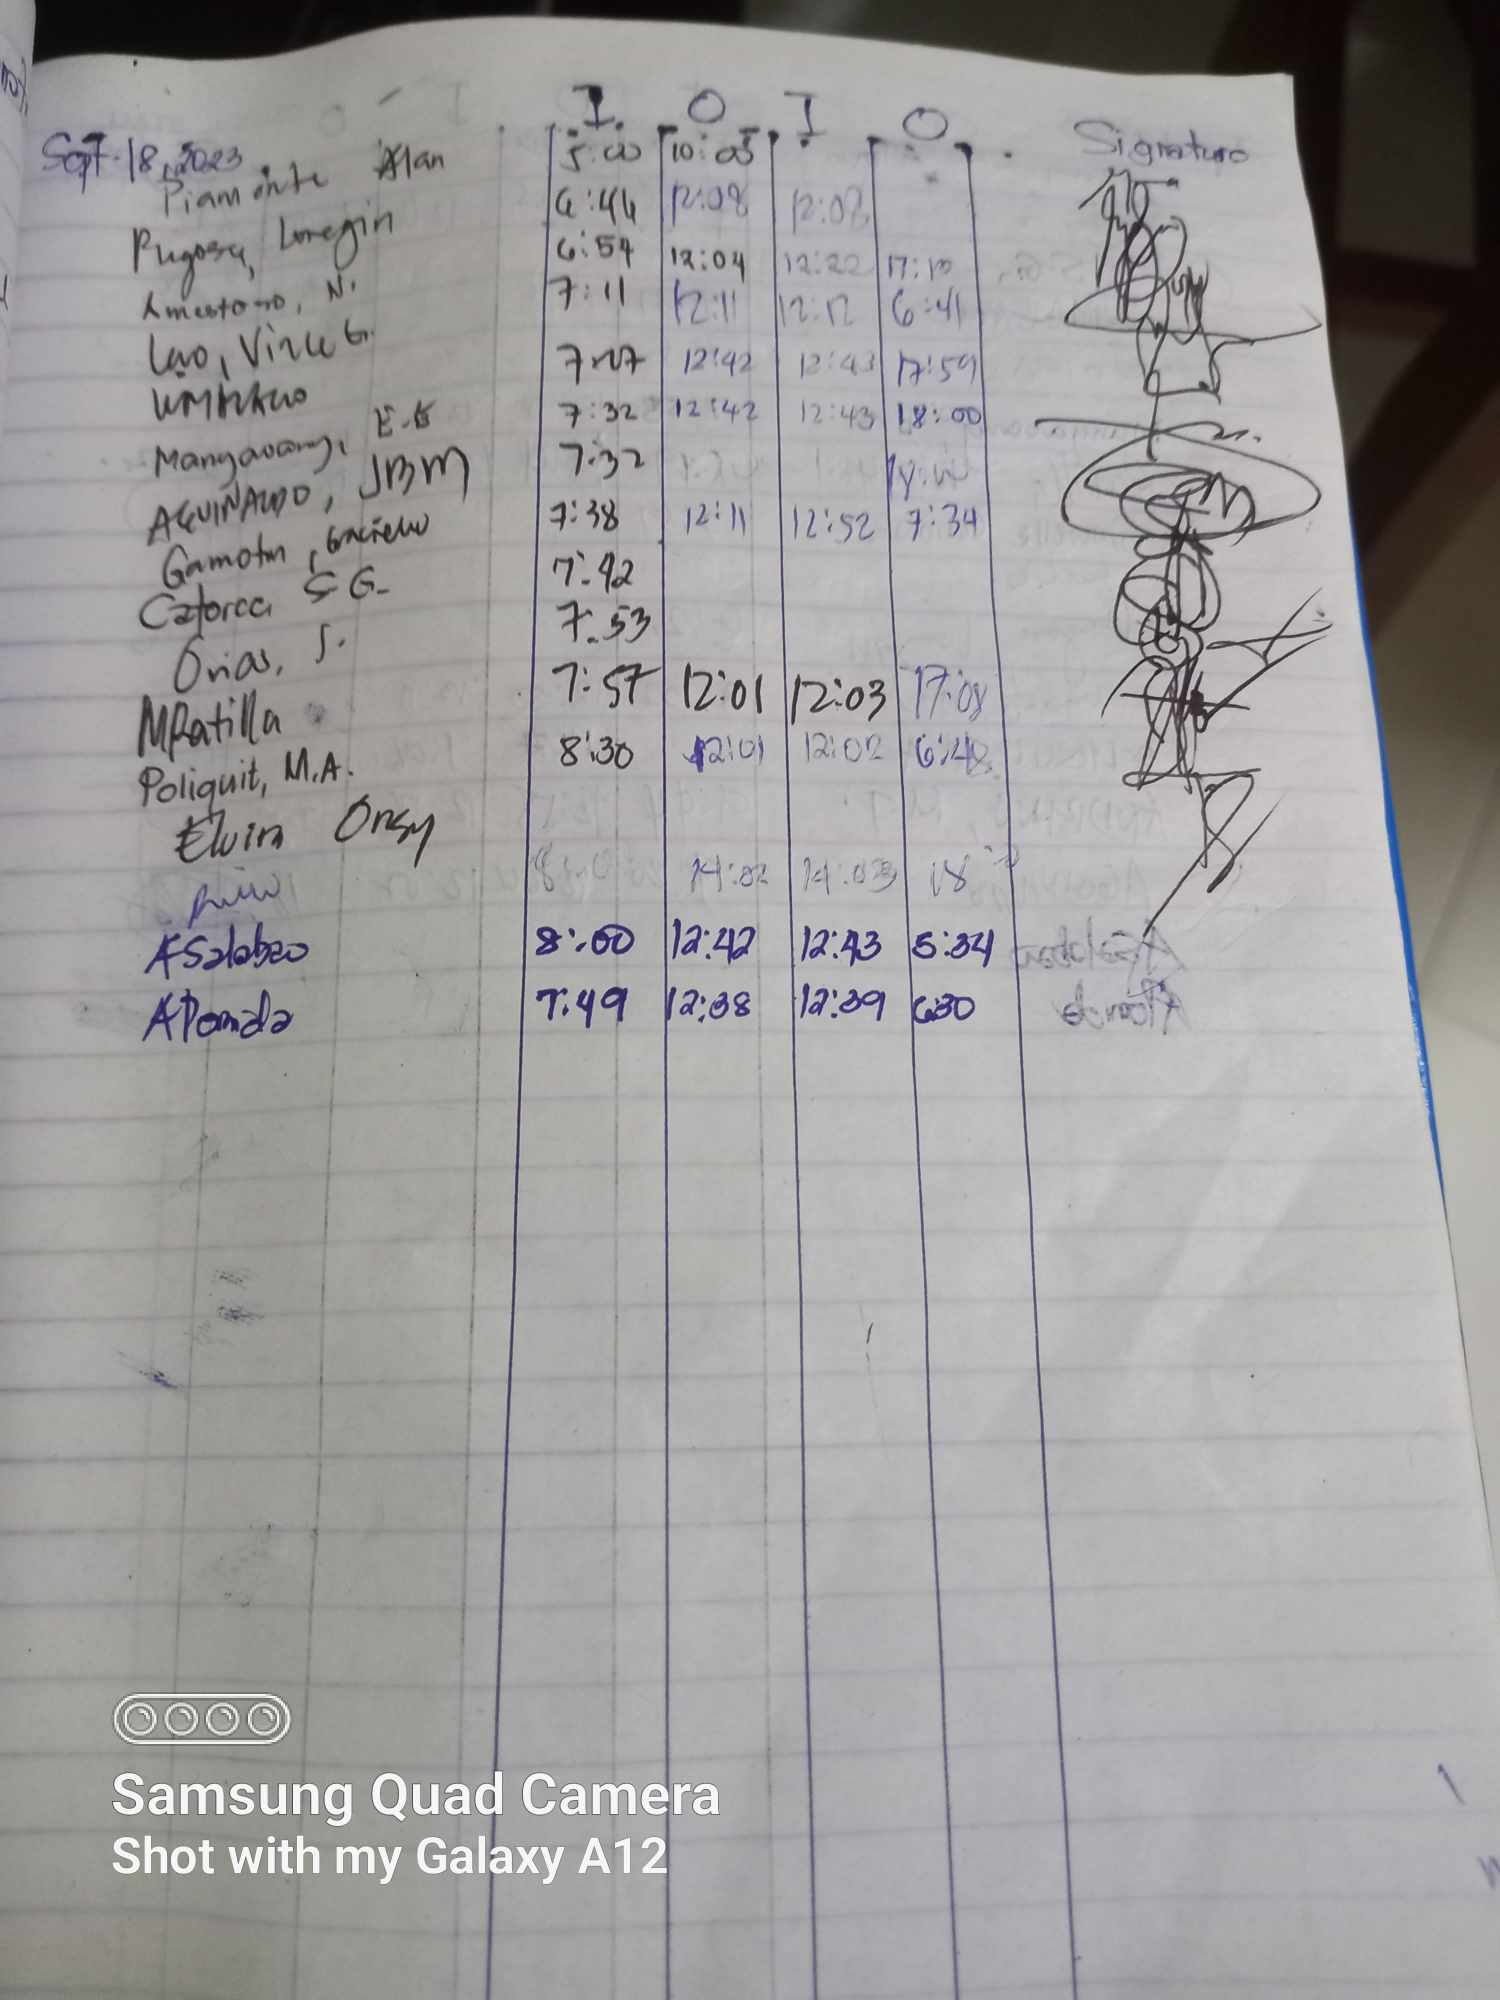 I O I O Signature
Sept. 18, 2023
Piamonte Alan 5:00 10:05
Pugosa, Loregin 6:44 12:08 12:08
N. 6:54 12:04 12:22 17:10
Lao, Vince G. 7:11 12:11 12:12 6:41
7:27 12:42 12:43 17:59
E.B 7:32 12:42 12:43 18:00
AGUINALDO, JBM 7:32
Gamotin, 7:38 12:11 12:52 7:34
Catorce, S G. 7:42
Orias, J. 7:53
MRatilla 7:57 12:01 12:03 17:08
Poliquit, M.A. 8:30 12:01 12:02 6:48
Elvira Orsy
14:02 14:03 18
ASalabao 8:00 12:42 12:43 5:34
APomida 7:49 12:38 12:39 6:30
Samsung Quad Camera
Shot with my Galaxy A12